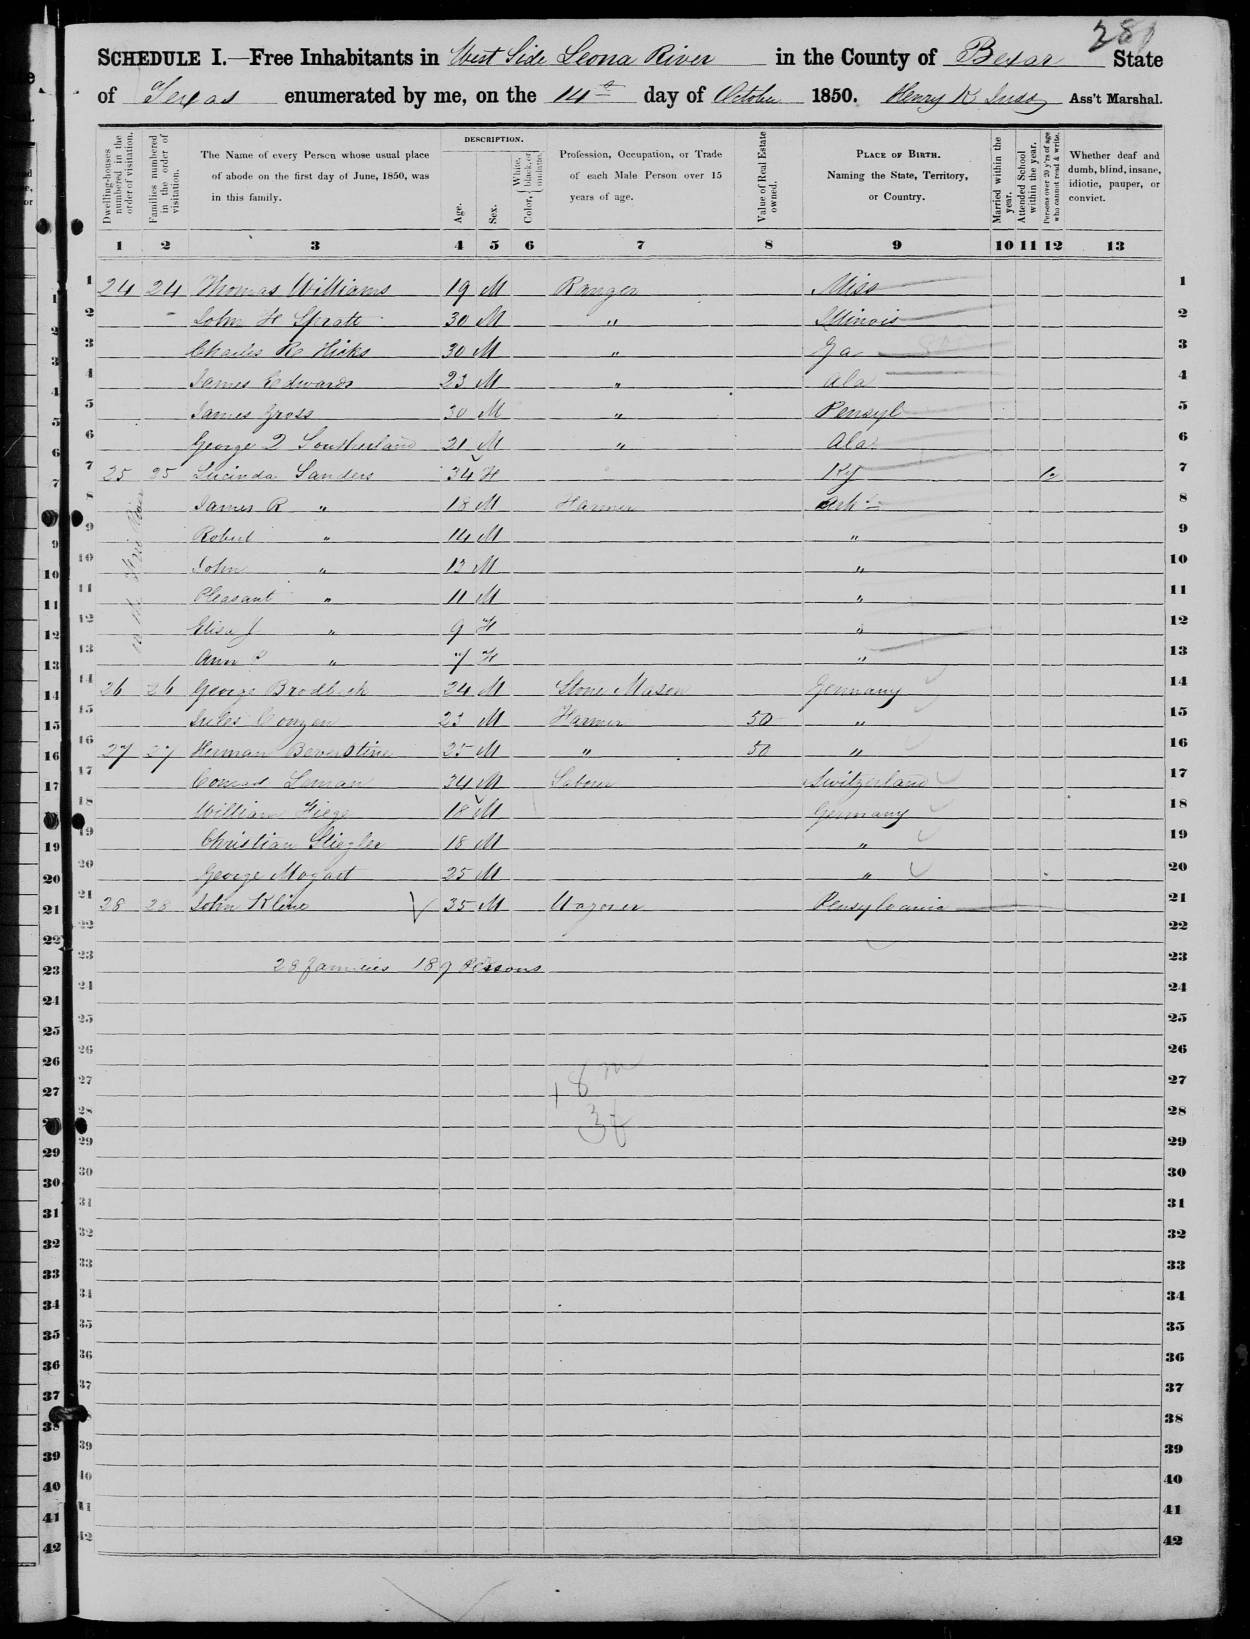 281
SCHEDULE I.—Free Inhabitants in West Side Leona River in the County of Bexar State
of Texas enumerated by me, on the 14th day of October 1850. Henry K Ass't Marshal.
Dwelling-houses numbered in the order of visitation.
Families numbered in the order of visitation.
The Name of every Person whose usual place of abode on the first day of June, 1850, was in this family.
DESCRIPTION.
Age.
Sex.
Color, { White, black, or mulatto.
Profession, Occupation, or Trade of each Male Person over 15 years of age.
Value of Real Estate owned.
PLACE OF BIRTH. Naming the State, Territory, or Country.
Married within the year.
Attended School within the year.
Persons over 20 y'rs of age who cannot read & write.
Whether deaf and dumb, blind, insane, idiotic, pauper, or convict.
1 2 3 4 5 6 7 8 9 10 11 12 13
1 24 24 Thomas Williams 19 M Ranger Miss 1
2 John H Spratt 30 M " Illinois 2
3 Charles R Hicks 30 M " Ga 3
4 James Edwards 23 M " Ala 4
5 James Gross 30 M " Pensyl 5
6 George Q Southerland 21 M " Ala 6
7 25 25 Lucinda Sanders 34 F Ky 7
8 James R " 18 M Farmer Ark 8
9 Robert " 14 M " 9
10 John " 13 M " 10
11 Pleasant " 11 M " 11
12 Elisa J " 9 F " 12
13 Ann " 7 F " 13
14 26 26 George Brodbeck 24 M Stone Mason Germany 14
15 Jules Conzen 23 M Farmer 50 " 15
16 27 27 Herman Beverstine 25 M " 50 " 16
17 Conrad Leman 34 M Labour Switzerland 17
18 William 18 M Germany 18
19 Christian Stiegler 18 M " 19
20 George 25 M " 20
21 28 28 John Kline 35 M Wagoner Pensylvania 21
22 22
23 28 families 189 Persons 23
24 24
25 25
26 26
27 18 m 27
28 3 f 28
29 29
30 30
31 31
32 32
33 33
34 34
35 35
36 36
37 37
38 38
39 39
40 40
41 41
42 42